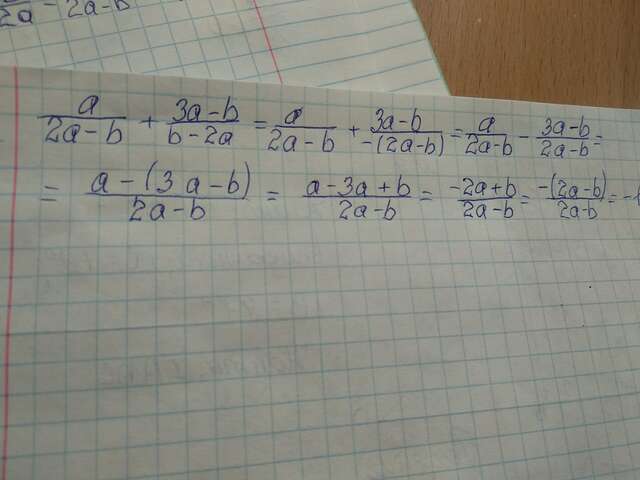 2a - 2a-b
a/(2a-b) + (3a-b)/(b-2a) = a/(2a-b) + (3a-b)/(-(2a-b)) = a/(2a-b) - (3a-b)/(2a-b) =
= (a-(3a-b))/(2a-b) = (a-3a+b)/(2a-b) = (-2a+b)/(2a-b) = (-(2a-b))/(2a-b) = -1